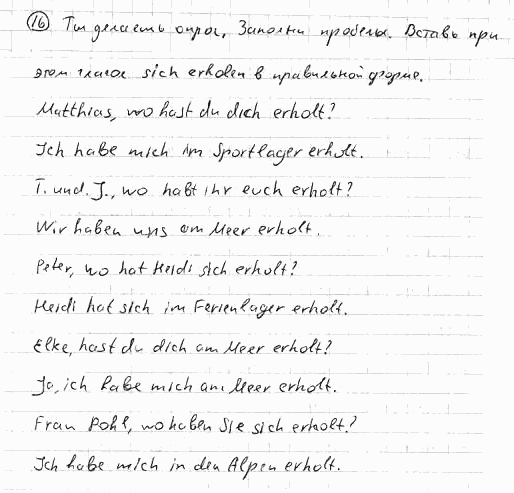 16 Ты делаешь опрос, Заполни пробелы. Вставь при
этом глагол sich erholen в правильной форме.
Matthias, wo hast du dich erholt?
Ich habe mich im Sportlager erholt.
T. und J., wo habt ihr euch erholt?
Wir haben uns am Meer erholt.
Peter, wo hat Heidi sich erholt?
Heidi hat sich im Ferienlager erholt.
Elke, hast du dich am Meer erholt?
Ja, ich habe mich am Meer erholt.
Frau Pohl, wo haben Sie sich erholt?
Ich habe mich in den Alpen erholt.